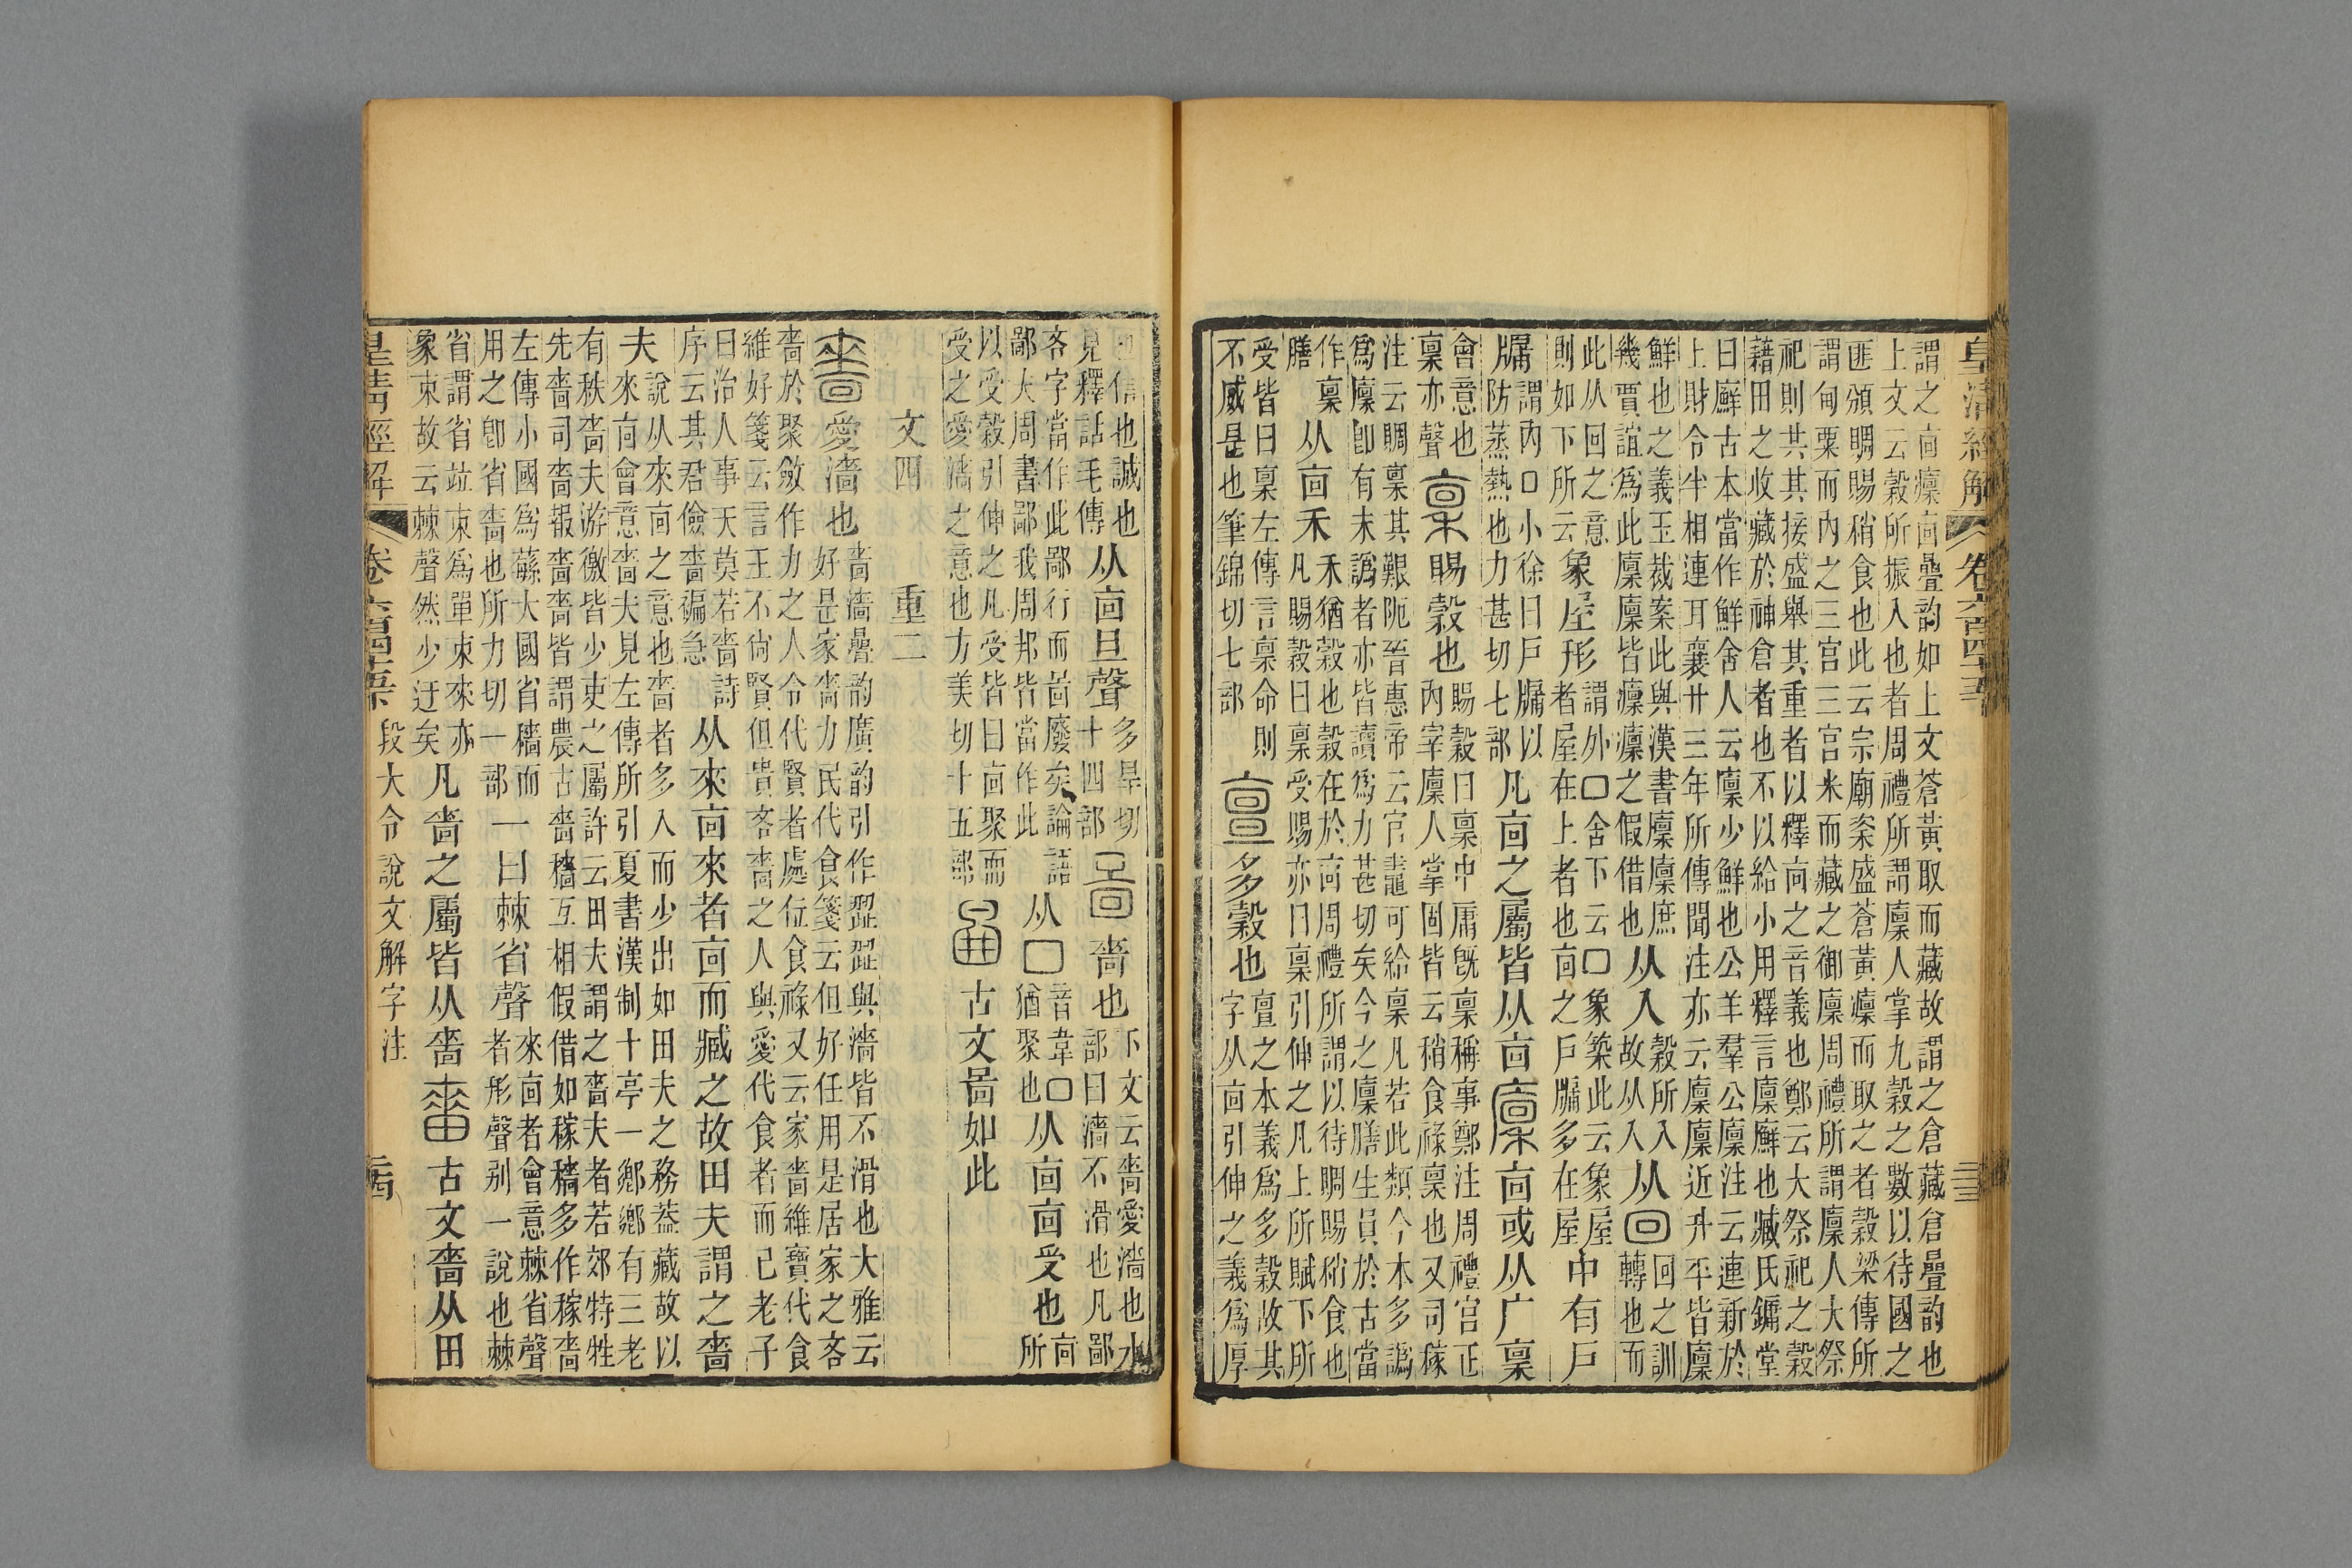 皇清經解 卷六百四十五
謂之㐭癛㐭疊韵如上文蒼黃取而藏故謂之倉藏倉疊韵也
上文云榖所振入也者周禮所謂廩人掌九榖之數以待國之
匪頒賙賜稍食也此云宗廟粢盛蒼黃癛而取之者榖梁傳所
謂甸粟而內之三宮三宮米而藏之御廩周禮所謂廩人大祭
祀則共其接盛舉其重者以釋㐭之音義也鄭云大祭祀之榖
藉田之收藏於神倉者也不以給小用釋言廩廯也臧氏鏞堂
曰廯古本當作鮮舍人云廩少鮮也公羊羣公廩注云連新於
上財令半相連耳襄卅三年所傳聞注亦云廩廩近升平皆廩
鮮也之義玉裁案此與漢書廩廩庶幾賈誼爲此廩廩皆癛癛之假借也从入穀所入故从入从回回之訓轉也而
此从回之意則如下所云象屋形謂外囗舍下云囗象築此云象屋者屋在上者也㐭之戶牖多在屋中有戶
牖謂內口小徐曰戶牖以防蒸熱也力甚切七部凡㐭之屬皆从㐭廩㐭或从广稟
會意也稟亦聲稟賜榖也賜穀曰稟中庸旣稟稱事鄭注周禮宮正內宰廩人掌固皆云稍食祿稟也又司稼
注云賙稟其艱阨晉惠帝云官鼃可給稟凡若此類今本多譌
爲廩卽有未譌者亦皆讀爲力甚切矣今之廩膳生員於古當
作稟膳从㐭禾禾猶榖也穀在於㐭周禮所謂以待賙賜稍食也凡賜穀曰稟受賜亦曰稟引伸之凡上所賦下所
受皆曰稟左傳言稟命則不威是也筆錦切七部亶多榖也亶之本義爲多穀故其字从㐭引伸之義爲厚
也信也誠也見釋詁毛傳从㐭旦聲多旱切十四部啚嗇也下文云嗇愛濇也水部曰濇不滑也凡鄙
吝字當作此鄙行而啚廢矣論語鄙夫周書鄙我周邦皆當作此从囗音韋囗猶聚也从㐭㐭受也㐭所
以受穀引伸之凡受皆曰㐭聚而受之愛濇之意也方美切十五部古文啚如此
文四 重二
嗇愛濇也嗇濇疊韵廣韵引作歰歰與濇皆不滑也大雅云好是家嗇力民代食箋云但好任用是居家之吝
嗇於聚斂作力之人令代賢者處位食祿又云家嗇維寶代食
維好箋云言王不尙賢但貴吝嗇之人與愛代食者而已老子
曰治人事天莫若嗇詩序云其君儉嗇褊急从來㐭來者㐭而臧之故田夫謂之嗇
夫說从來㐭之意也嗇者多入而少出如田夫之務葢藏故以來㐭會意嗇夫見左傳所引夏書漢制十亭一鄉鄉有三老
有秩嗇夫游徼皆少吏之屬許云田夫謂之嗇夫者若郊特牲
先嗇司嗇報嗇嗇皆謂農古嗇穡互相假借如稼穡多作稼嗇
左傳小國爲蘨大國省穡而用之卽省嗇也所力切一部一曰棘省聲來㐭者會意棘省聲者形聲别一說也棘
省謂省竝朿爲單朿來亦象朿故云棘聲然少迂矣凡嗇之屬皆从嗇古文嗇从田
皇清經解 卷六百四十五 段大令說文解字注